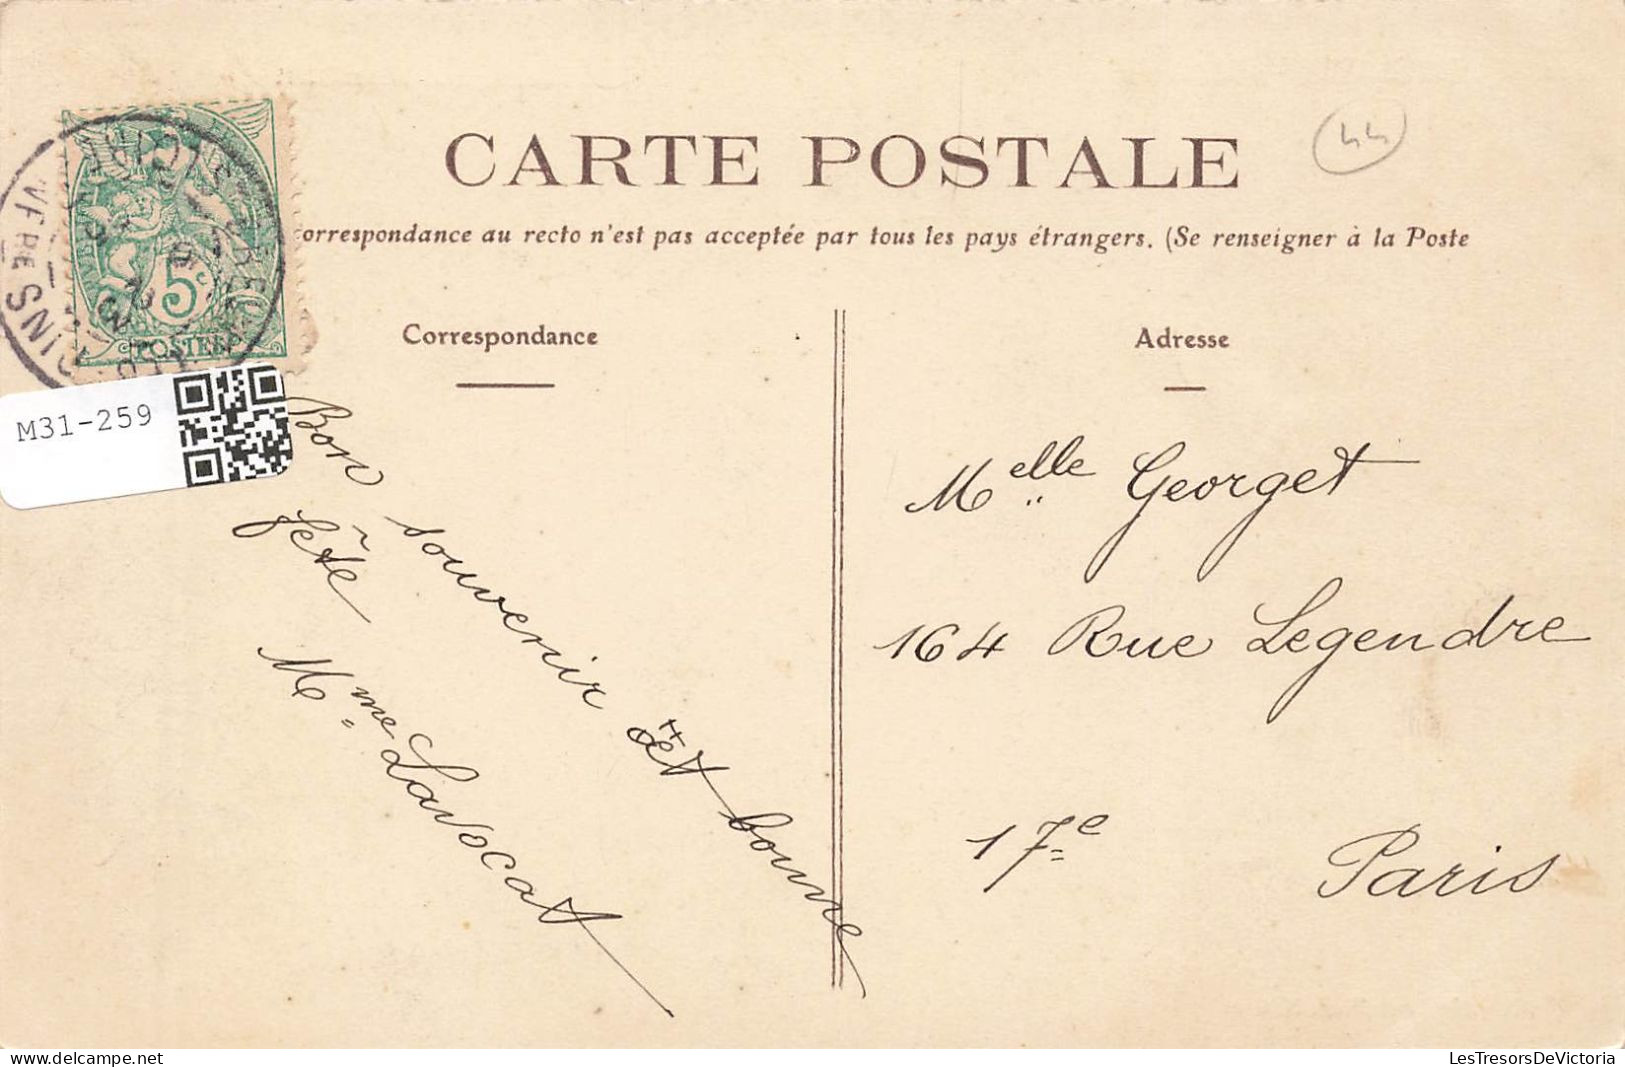 CARTE POSTALE
44
orrespondance au recto n'est pas acceptée par tous les pays étrangers. (Se renseigner à la Poste
5c
POSTES
Correspondance
Adresse
M31-259
Bon souvenir et bonne
fête
Mme Lavocat
Melle Georget
164 Rue Legendre
17e Paris
LesTresorsDeVictoria